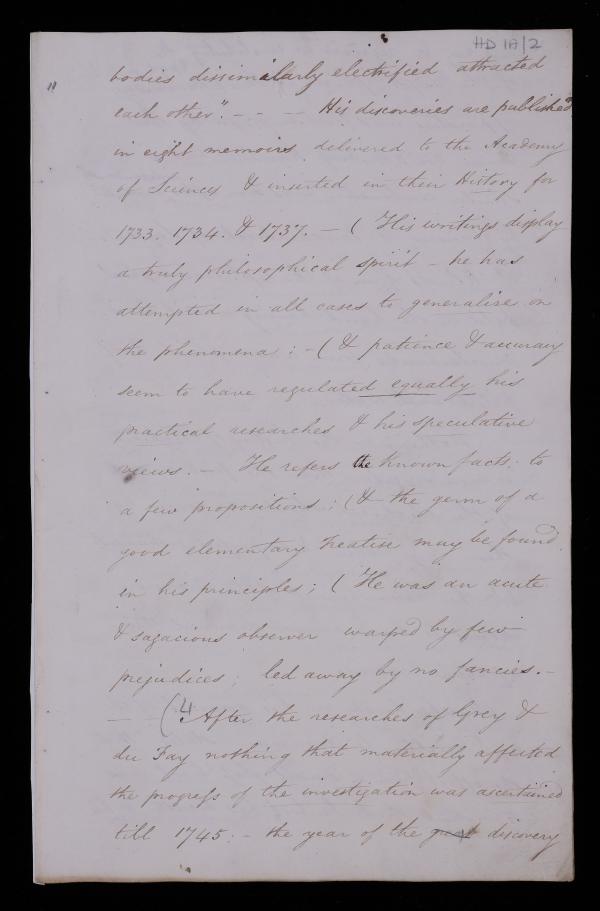 HD 1A/2
" bodies dissimilarly electrified attracted
each other". - - - His discoveries are published
in eight memoirs delivered to the Academy
of Sciences & inserted in their History for
1733. 1734. & 1737. - ( His writings display
a truly philosophical spirit - he has
attempted in all cases to generalise on
the phenomena : - ( & patience & accuracy
seem to have regulated equally his
practical researches & his speculative
views. - He refers the known facts to
a few propositions ; ( & the germ of a
good elementary treatise may be found
in his principles ; ( He was an acute
& sagacious observer warped by few
prejudices ; led away by no fancies. -
- ( 4 After the researches of Grey &
du Fay nothing that materially affected
the progress of the investigation was ascertained
till 1745 : - the year of the great discovery